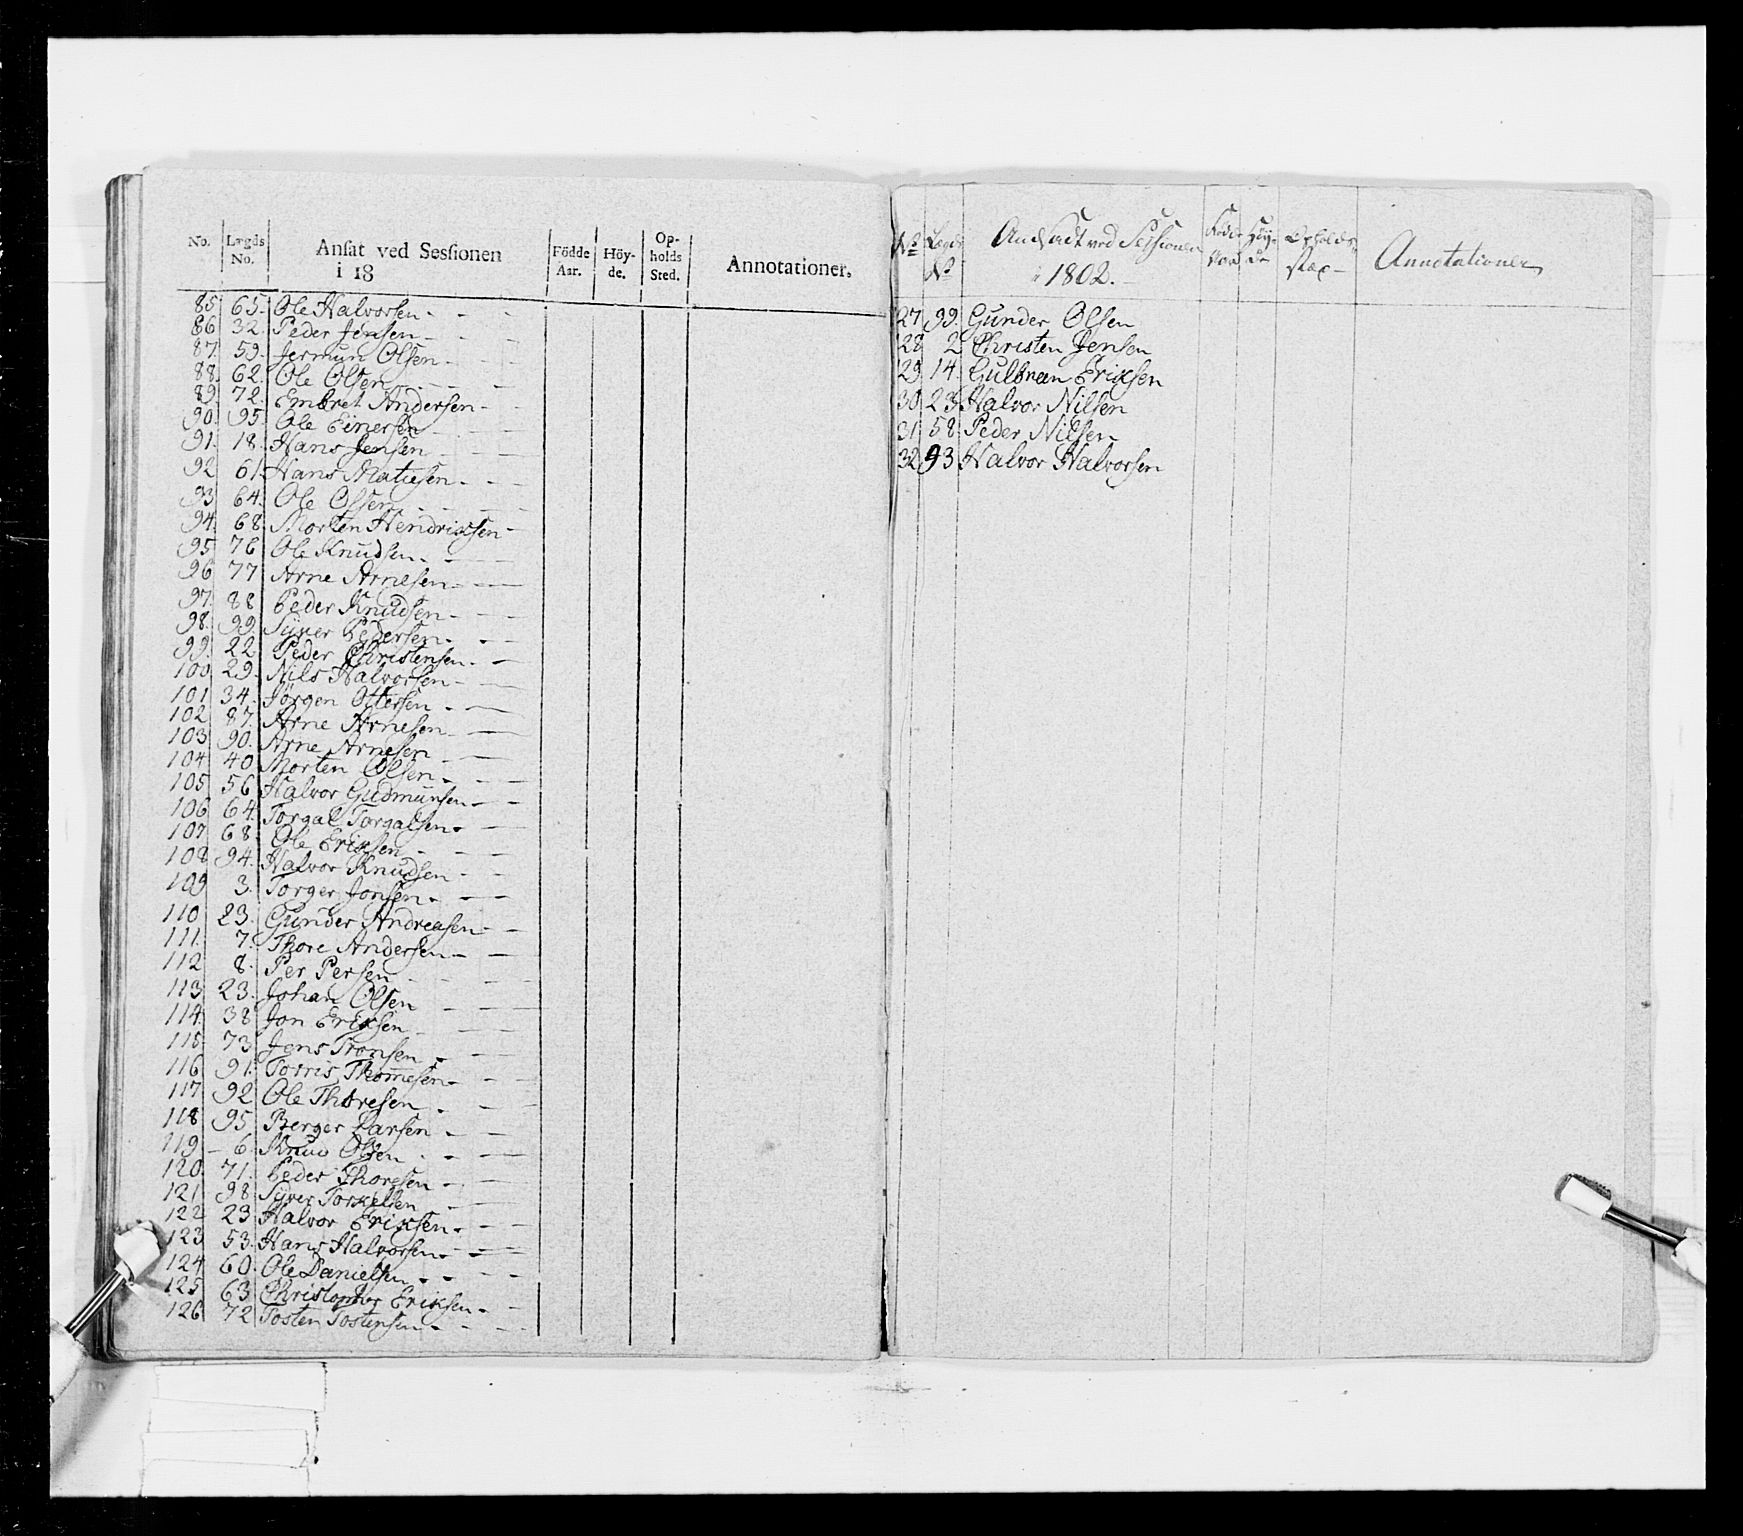 No. Lægds No. Ansat ved Sessionen i 18 Födde Aar. Höy-de. Op-holds Sted. Annotationer.
85 65. Ole Halvorsen
86 32. Peder Jensen
87. 59. Jermun Olsen
88. 62. Ole Olsen
89. 72. Embret Andersen
90. 95. Ole Einersen
91. 18. Hans Jensen
92 61 Hans Matiesen
93 64. Ole Olsen
94. 68. Morten Hendrixsen
95 76 Ole Knudsen
96 77 Arne Arnesen
97. 88 Peder Knudsen
98. 99. Syver Pedersen
99. 22 Peder Christensen
100 29. Nils Halvorsen
101 34. Jörgen Ottersen
102 87. Arne Arnesen
103 90. Arne Arnesen
104 40 Morten Olsen
105 56 Halvor Gudmunsen
106 64. Torgal Torgalsen
107 68. Ole Erixsen
108 94. Halvor Knudsen
109 3. Torger Jonsen
110 23. Gunder Andreasen
111. 7. Thore Andersen
112 8. Per Persen
113 23. Johan Olsen
114. 38 Jon Erixsen
115 73 Jens Tronsen
116 91. Torris Thomesen
117 92 Ole Thoresen
118 95 Berger Larsen
119 6. Knud Olsen
120. 71. Peder Thoresen
121 98 Syver Torkelsen
122 23 Halvor Erixsen
123 53. Hans Halvorsen
124 60. Ole Danielsen
125 63 Christopher Erixsen
126 72 Tosten Tostensen
No Lægds No Andsadt ved Sessionen i 1802. Födde Aar Höy-de Opholds Annotationer
27 99. Gunder Olsen
28 2 Christen Jensen
29 14. Gulbran Erixsen
30 23 Halvor Nilsen
31 58. Peder Nilsen
32 93 Halvor Halvorsen